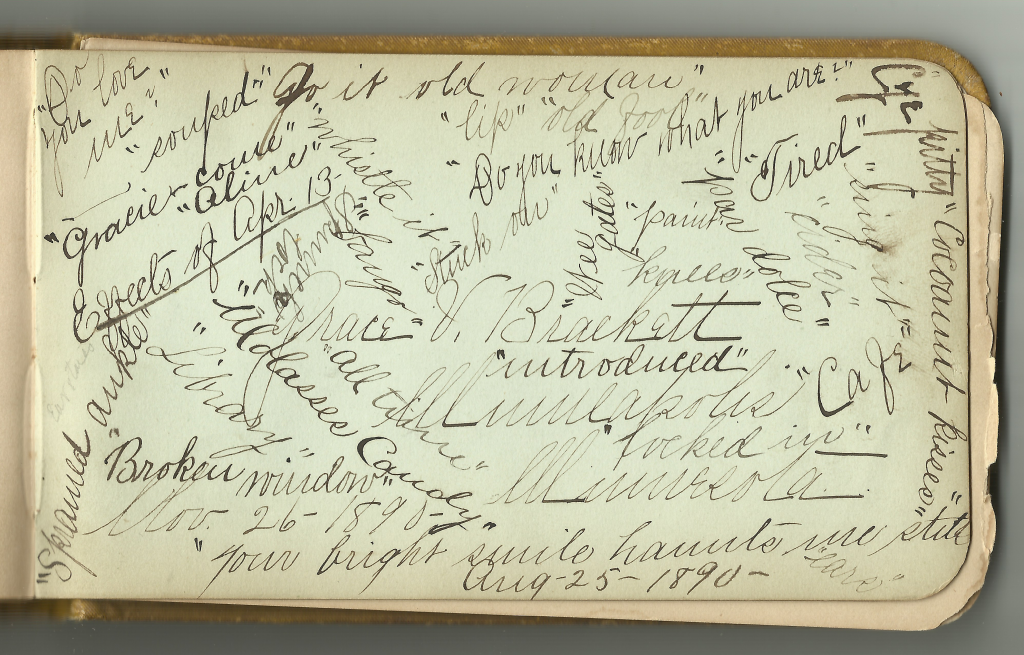 "Do you love me?"
"souped"
"Go it old woman"
"lip" "old fool"
"Do you know what you are?"
Cyr
kitty
"Gracie come"
"Aline"
Effects of Apr. 13-
"whistle it"
"Stuck on"
"Gates"
"paint"
"pas dolce"
"Tired"
"sing it"
"cider"
"Cocoanut kisses"
"knees"
Grace V. Brackett
"introduced"
Minneapolis
"locked in"
Minnesota
"all time"
"Molasses Candy"
"Library"
"Sprained ankle"
"Broken window"
Nov. 26-1890-
"your bright smile haunts me still"
Aug-25-1890-
"ears"